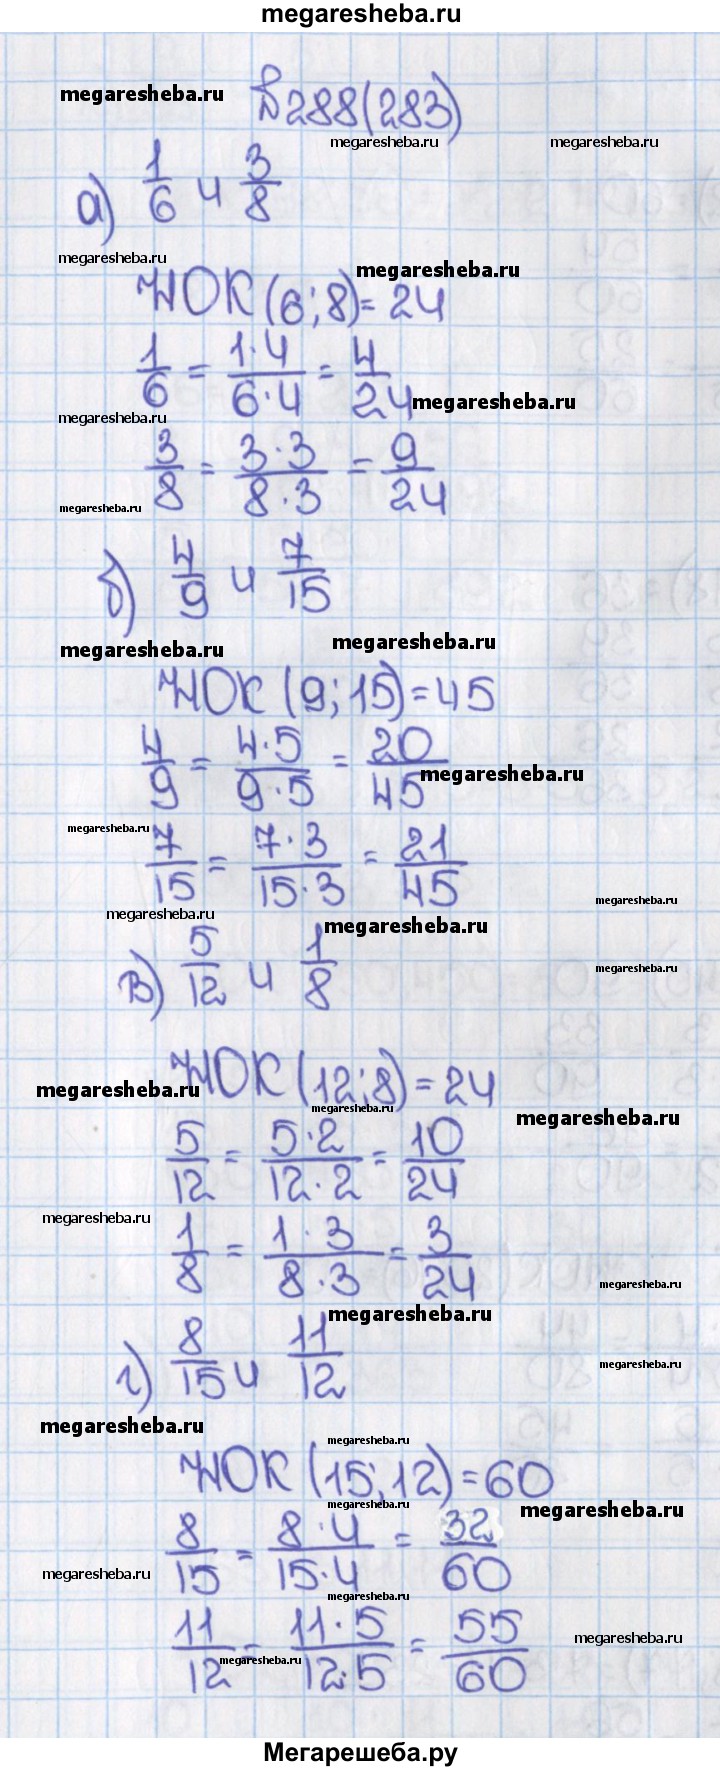 megaresheba.ru
megaresheba.ru
№288(283)
megaresheba.ru megaresheba.ru
а) 1/6 и 3/8
megaresheba.ru megaresheba.ru
НОК(6;8)=24
1/6 = 1·4/6·4 = 4/24
megaresheba.ru
megaresheba.ru
3/8 = 3·3/8·3 = 9/24
megaresheba.ru
б) 4/9 и 7/15
megaresheba.ru megaresheba.ru
НОК(9;15)=45
4/9 = 4·5/9·5 = 20/45
megaresheba.ru
megaresheba.ru
7/15 = 7·3/15·3 = 21/45
megaresheba.ru
megaresheba.ru megaresheba.ru
в) 5/12 и 1/8
megaresheba.ru
НОК(12;8)=24
megaresheba.ru megaresheba.ru megaresheba.ru
5/12 = 5·2/12·2 = 10/24
megaresheba.ru
1/8 = 1·3/8·3 = 3/24
megaresheba.ru
megaresheba.ru
г) 8/15 и 11/12
megaresheba.ru
megaresheba.ru megaresheba.ru
НОК(15;12)=60
megaresheba.ru megaresheba.ru
8/15 = 8·4/15·4 = 32/60
megaresheba.ru
megaresheba.ru
11/12 = 11·5/12·5 = 55/60
megaresheba.ru megaresheba.ru
Мегарешеба.ру